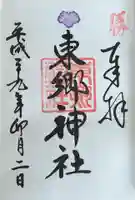 奉拝
東郷神社
平成二十九年卯月二日